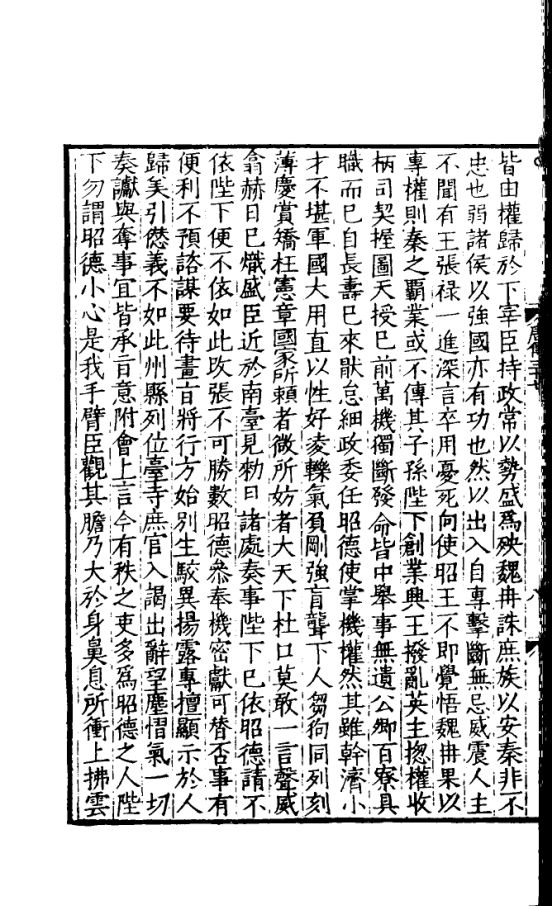 皆由權歸於下宰臣持政常以勢盛爲殃魏冉誅庶族以安秦非不
忠也弱諸侯以強國亦有功也然以出入自專擊斷無忌威震人主
不聞有王張祿一進深言卒用憂死向使昭王不即覺悟魏冉果以
專權則秦之霸業或不傳其子孫陛下創業興王撥亂英主揔權收
柄司契握圖天授已前萬機獨斷發命皆中舉事無遺公卿百寮具
職而已自長壽已來猒怠細政委任昭德使掌機權然其雖幹濟小
才不堪軍國大用直以性好凌轢氣負剛強盲聾下人芻狗同列刻
薄慶賞矯枉憲章國家所頼者微所妨者大天下杜口莫敢一言聲威
翕赫日已熾盛臣近於南臺見勑曰諸處奏事陛下已依昭德請不
依陛下便不依如此改張不可勝數昭德叅奉機密獻可替否事有
便利不預諮謀要待畫旨將行方始別生駮異揚露專擅顯示於人
歸美引愆義不如此州縣列位臺寺庶官入謁出辭望塵慴氣一切
奏讞與奪事宜皆承旨意附會上言今有秩之吏多爲昭德之人陛
下勿謂昭德小心是我手臂臣觀其膽乃大於身鼻息所衝上拂雲